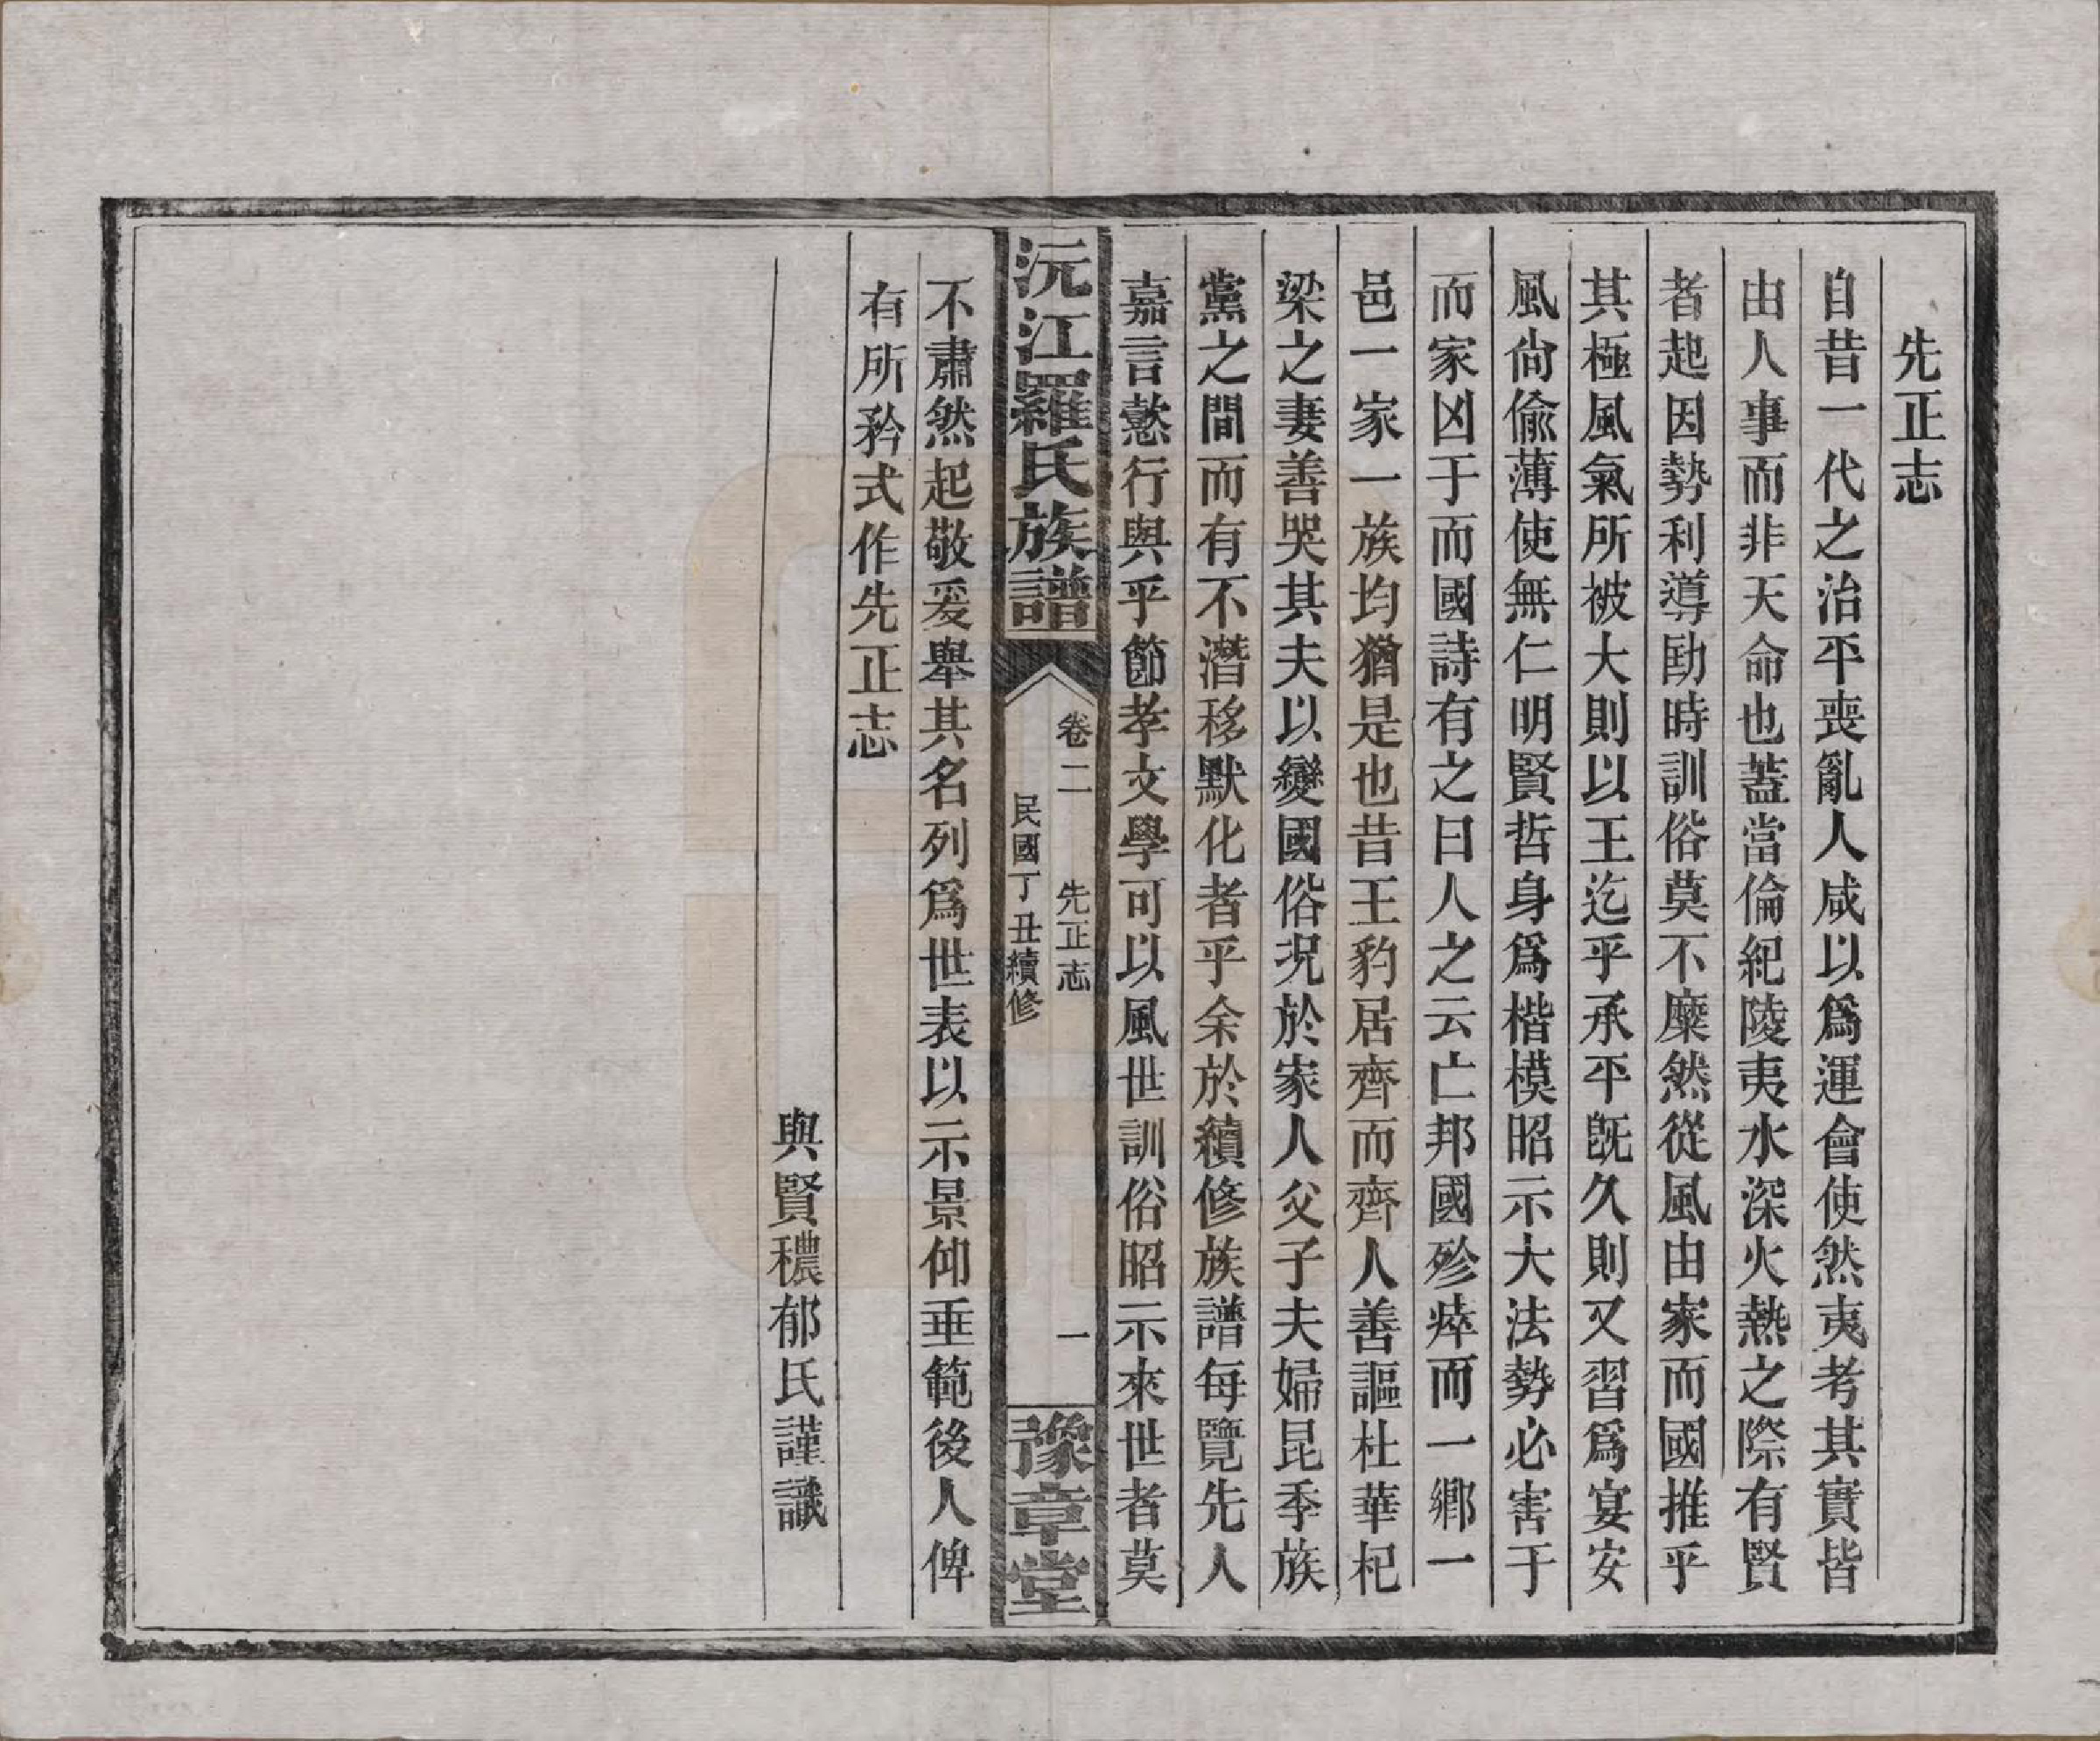 先正志
自昔一代之治平喪亂人咸以爲運會使然夷考其實皆
由人事而非天命也蓋當倫紀陵夷水深火熱之際有賢
者起因勢利導勖時訓俗莫不糜然從風由家而國推乎
其極風氣所被大則以王迄乎承平既久則又習爲宴安
風尙偷薄使無仁明賢哲身爲楷模昭示大法勢必害于
而家凶于而國詩有之曰人之云亡邦國殄瘁而一鄉一
邑一家一族均猶是也昔王豹居齊而齊人善謳杜華杞
梁之妻善哭其夫以變國俗況於家人父子夫婦昆季族
黨之間而有不潛移默化者乎余於續修族譜每覽先人
嘉言懿行與乎節孝文學可以風世訓俗昭示來世者莫
沅江羅氏族譜
卷二 先正志 一
民國丁丑續修
豫章堂
不肅然起敬爰舉其名列爲世表以示景仰垂範後人俾
有所矜式作先正志
與賢穠郁氏謹識